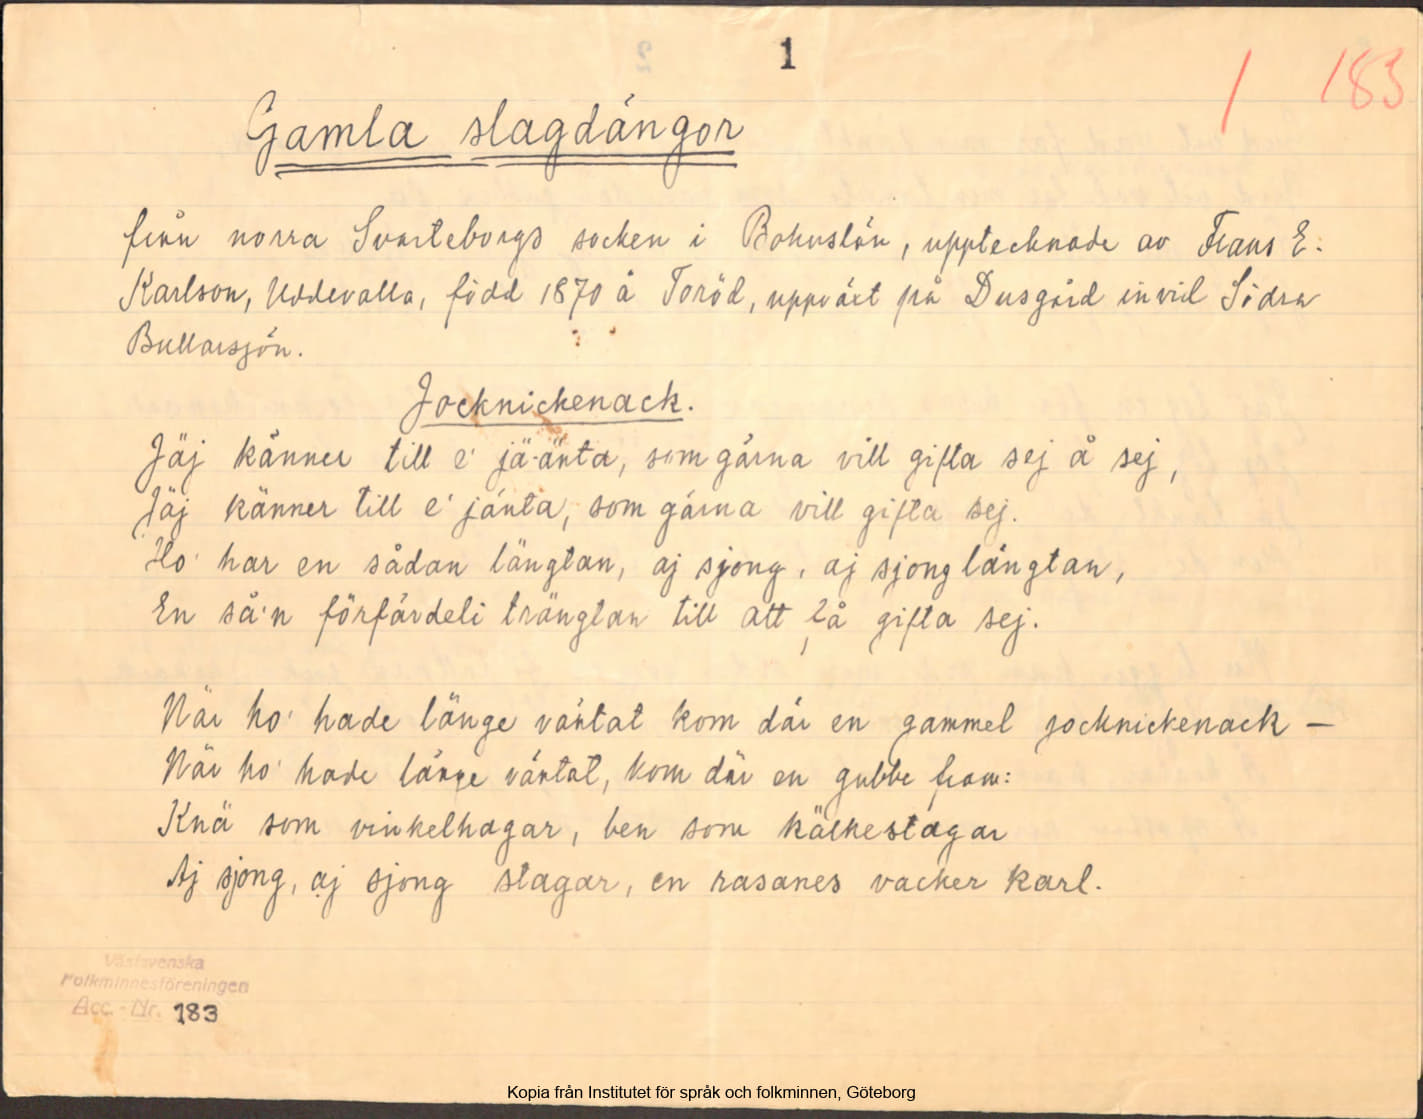 1
1 183
Gamla slagdängor
från norra Svarteborgs socken i Bohuslän, upptecknade av Frans E.
Karlson, Uddevalla, född 1870 å Toröd, uppväxt på Dusgård invid Södra
Bullarsjön.
Jocknickenack.
Jäj känner till e' jä-änta, som gärna vill gifta sej å sej,
Jäj känner till e' jänta, som gärna vill gifta sej.
Ho' har en sådan längtan, aj sjong, aj sjong längtan,
En så'n förfärdeli trängtan till att få gifta sej.
När ho' hade länge väntat kom där en gammel jocknickenack —
När ho' hade länge väntat, kom där en gubbe fram:
Knä som vinkelhagar, ben som kälkestagar
Aj sjong, aj sjong stagar, en rasanes vacker karl.
Västsvenska
Folkminnesföreningen
Acc.-Nr. 183
Kopia från Institutet för språk och folkminnen, Göteborg